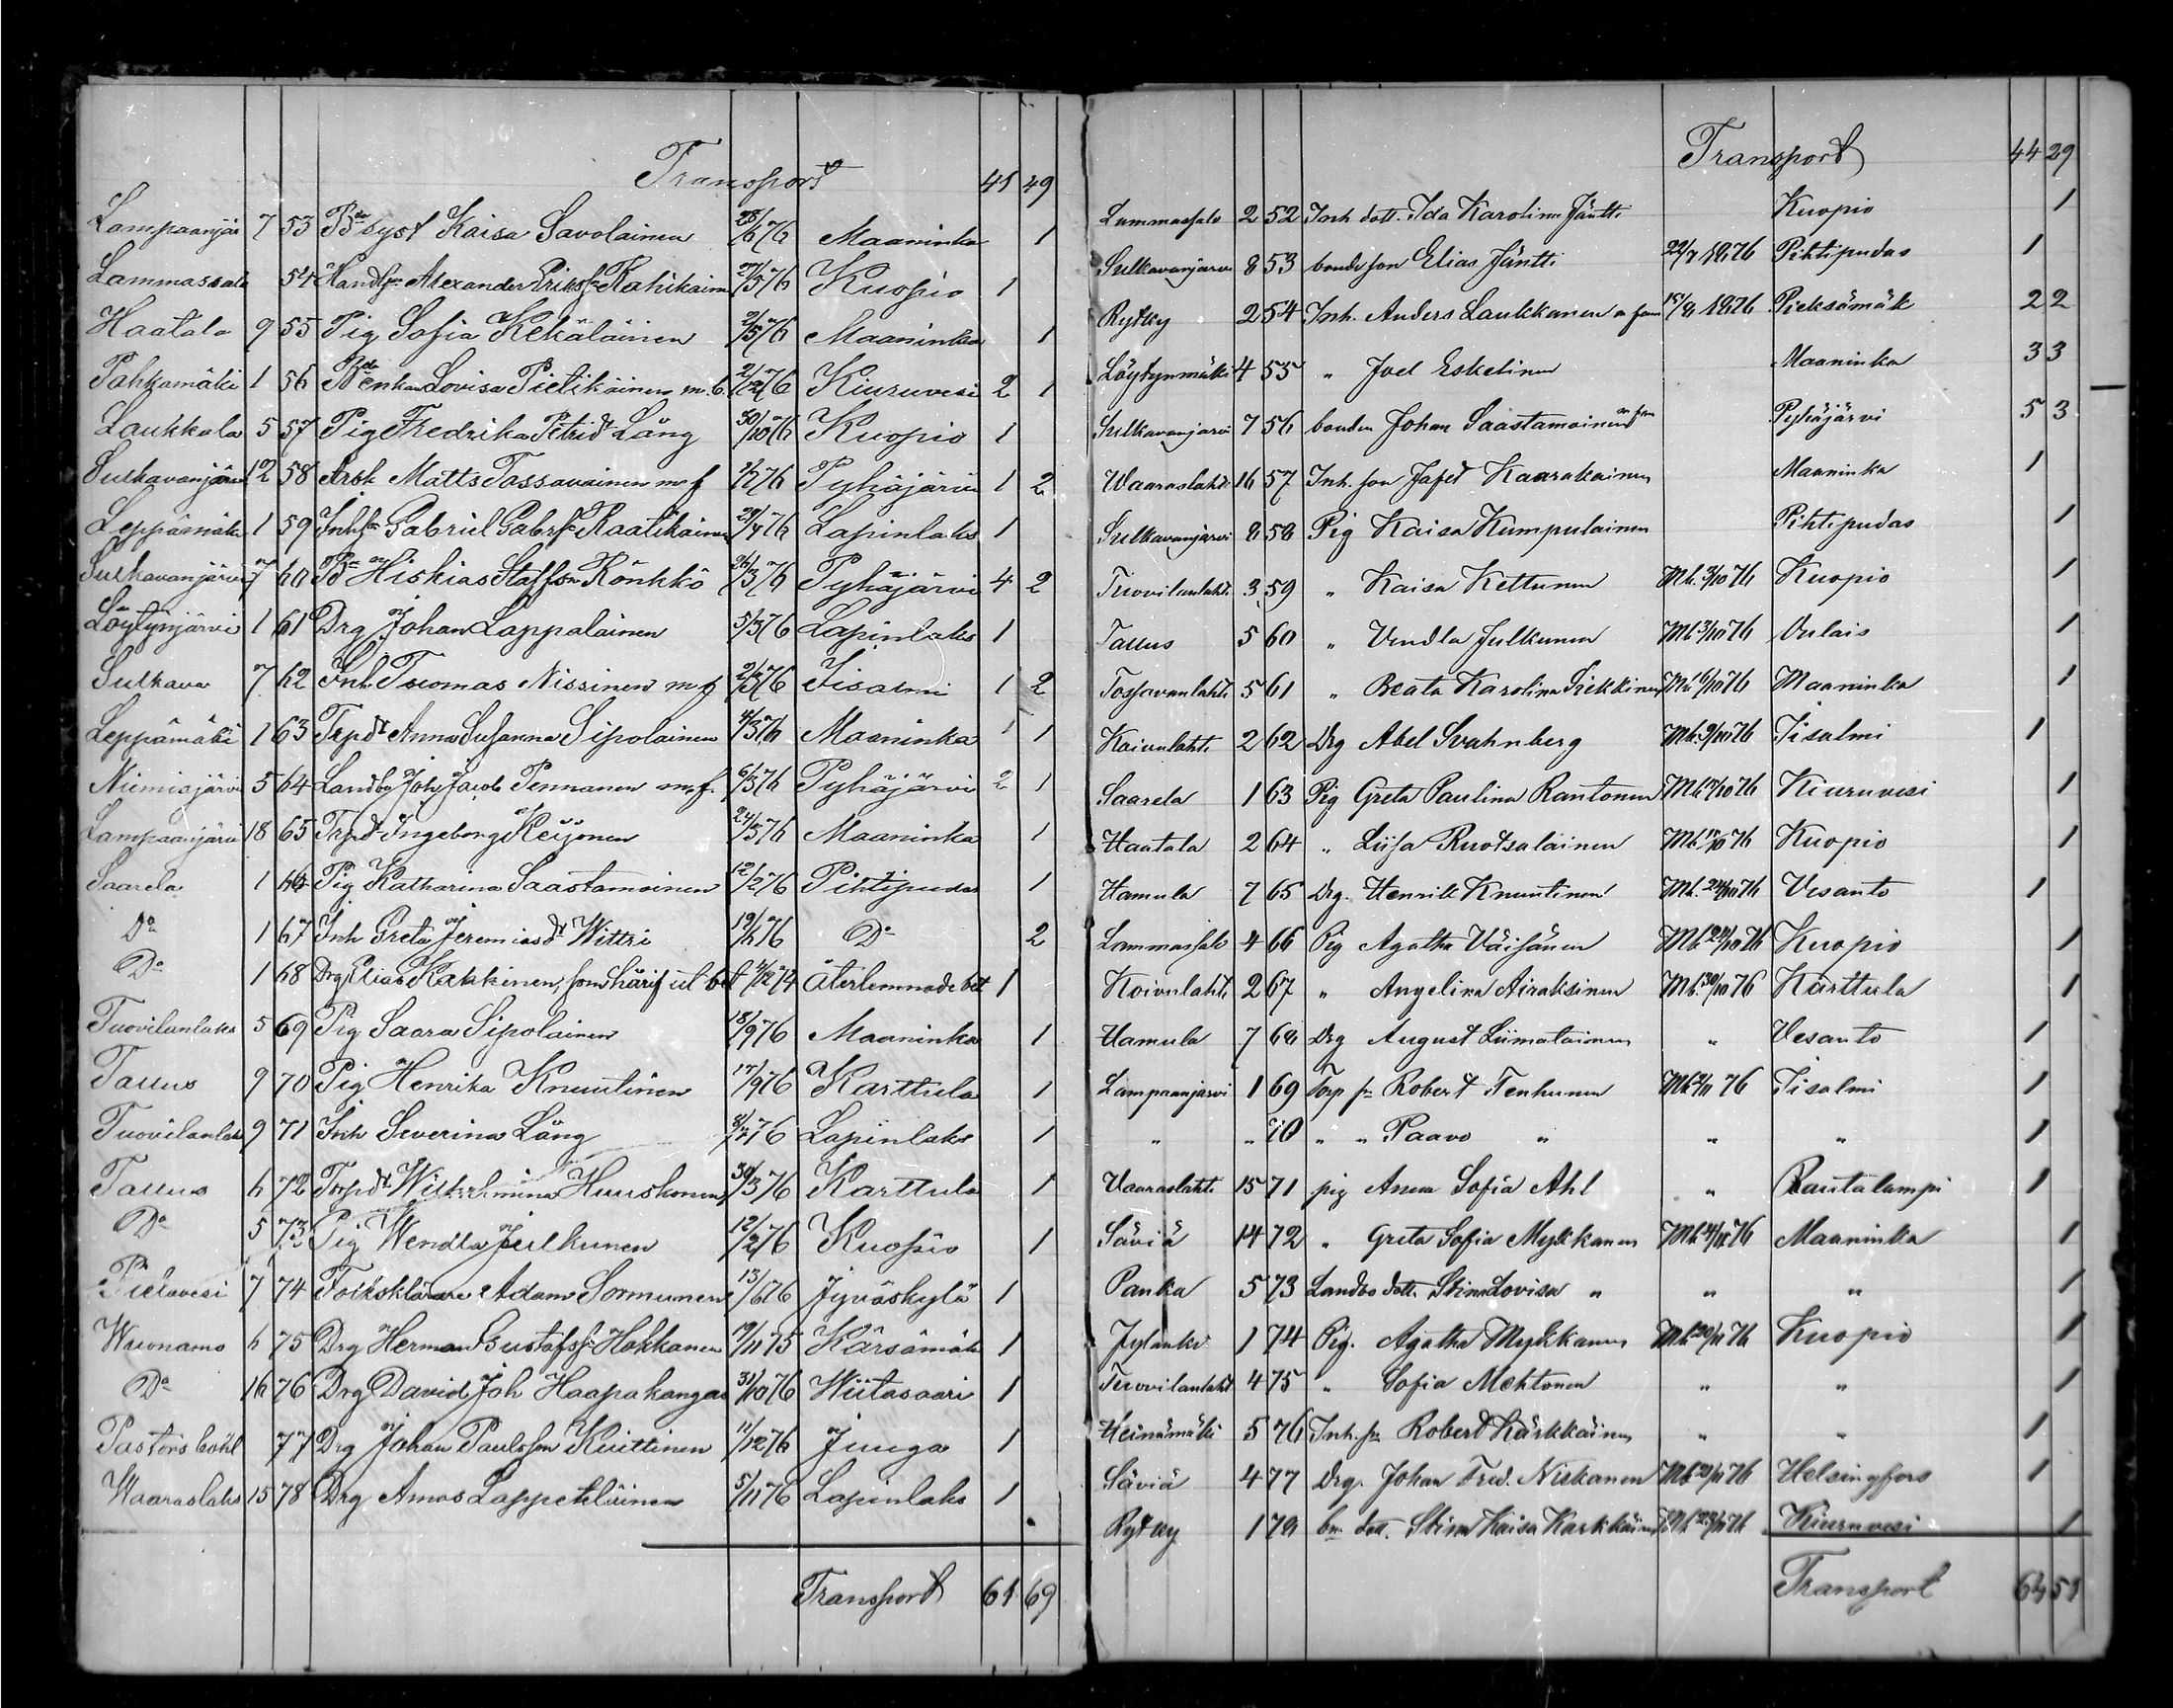 Transport 41 49
Lampaanjär 7 53 Bde syst Kaisa Savolainen 28/6 76 Maaninka 1
Lammassalo 54 Handlsn Alexander Erikss Rahikain 27/5 76 Kuopio 1
Haatala 9 55 Pig Sofia Kekäläinen 2/5 76 Maaninka 1
Pahkamäki 1 56 Bde Enkan Lovisa Pietikäinen m. b. 2/12 76 Kiuruvesi 2 1
Laukkala 5 57 Pig Fredrika Petrid Lång 30/10 76 Kuopio 1
Sulkavanjärvi 12 58 Arrk Matts Tossavainen m f 2/2 76 Pyhäjärvi 1 2
Leppämäki 1 59 Inhsn Gabriel Gabrs Raatikainen 29/4 76 Lapinlaks 1
Sulkavanjärvi 7 60 Bn Hiskias Staffsn Rönkkö 26/3 76 Pyhäjärvi 4 2
Löytynjärvi 1 61 Drg Johan Lappalainen 5/3 76 Lapinlaks 1
Sulkava 7 62 Inh Tuomas Nissinen m f 26/3 76 Iisalmi 1 2
Leppämäki 1 63 Trpdt Anna Susanna Sipolainen 4/3 76 Maaninka 1 1
Niemisjärvi 5 64 Landbo Joh Jacob Pennanen m. f. 6/3 76 Pyhäjärvi 2 1
Lampaanjärvi 18 65 Trpdt Ingeborg Reijonen 24/5 76 Maaninka 1
Saarela 1 66 Pig Katharina Saastamoinen 12/2 76 Pihtipudas 1
Do 1 67 Inh Greta Jeremiasdt Wittri 19/2 76 Do 2
Do 1 68 Drg Elias Kakkinen, som härif ut bet 4/12 74 återlemnade bet 1
Tuovilanlaks 5 69 Pig Saara Sipolainen 18/9 76 Maaninka 1
Tallus 9 70 Pig Henrika Knuutinen 17/9 76 Karttula 1
Tuovilanlaks 9 71 Inh Severina Lång 8/11 76 Lapinlaks 1
Tallus 6 72 Torpdt Wilhelmina Huuskonen 30/3 76 Karttula 1
Do 5 73 Pig Wendla Julkunen 12/2 76 Kuopio 1
Pielavesi 7 74 Folkskllärare Adam Sormunen 13/6 76 Jyväskylä 1
Wuonamo 6 75 Drg Herman Gustafss Hakkanen 19/11 75 Kärsämäki 1
Do 16 76 Drg David Joh Haapakangas 31/10 76 Wiitasaari 1
Pastorsbohl 77 Drg Johan Paulsson Kuittinen 11/12 76 Juuga 1
Waaraslaks 15 78 Drg Amos Lappeteläinen 5/11 76 Lapinlaks 1
Transport 61 69
Transport 44 29
Lammassalo 2 52 Inh dott. Ida Karolina Jäntti Kuopio 1
Sulkavanjärvi 8 53 bonde son Elias Jäntti 22/7 1876 Pihtipudas 1
Rytky 2 54 Inh. Anders Laukkanen m fam 15/8 1876 Pieksämäk 2 2
Löytynmäki 4 55 " Joel Eskelinen Maaninka 3 3
Sulkavanjarvi 7 56 bonden Johan Saastamoinen m fam Pyhäjärvi 5 3
Waaraslahti 16 57 Inh. son Jafet Kaarakainen Maaninka 1
Sulkavanjarvi 8 58 Pig Kaisa Kumpulainen Pihtipudas 1
Tuovilanlahti 3 59 " Kaisa Kettunen Mb. 3/10 76 Kuopio 1
Tallus 5 60 " Vendla Julkunen Mb. 3/10 76 Oulais 1
Tossavanlahti 5 61 " Beata Karolina Tiekkinen Mb 6/10 76 Maaninka 1
Koivulahti 2 62 Drg Abel Svahnberg Mb. 9/10 76 Iisalmi 1
Saarela 1 63 Pig Greta Paulina Rantonen Mb 17/10 76 Kiuruvesi 1
Haatala 2 64 " Liisa Ruotsalainen Mb 18/10 76 Kuopio 1
Hamula 7 65 Drg. Henrik Knuutinen Mb. 24/10 76 Vesanto 1
Lammassalo 4 66 Pig Agatha Väisänen Mb 24/10 76 Kuopio 1
Koivulahti 2 67 " Angelina Airaksinen Mb. 30/10 76 Karttula 1
Hamula 7 68 Drg August Liimatainen " Vesanto 1
Lampaanjarvi 1 69 Torp sn Robert Tenhunen Mb 2/11 76 Iisalmi 1
" " 70 " " Paavo " " " 1
Vaaraslahti 15 71 pig Anna Sofia Ahl " Rautalampi 1
Säviä 14 72 " Greta Sofia Mykkänen Mb 14/11 76 Maaninka 1
Panka 5 73 Landbo dott. Stina Lovisa " " " 1
Jylänki 1 74 Pig. Agatha Mykkänen Mb 20/11 76 Kuopio 1
Tuovilanlahti 4 75 " Sofia Mehtonen " " 1
Heinämäki 5 76 Inh. sn Robert Kärkkäinen " " 1
Säviä 4 77 Drg. Johan Fred. Niskanen Mb 21/11 76 Helsingfors 1
Rytky 1 78 bn dott. Stina Kaisa Karkkäinen Mb 23/11 76 Kiuruvesi 1
Transport 64 51